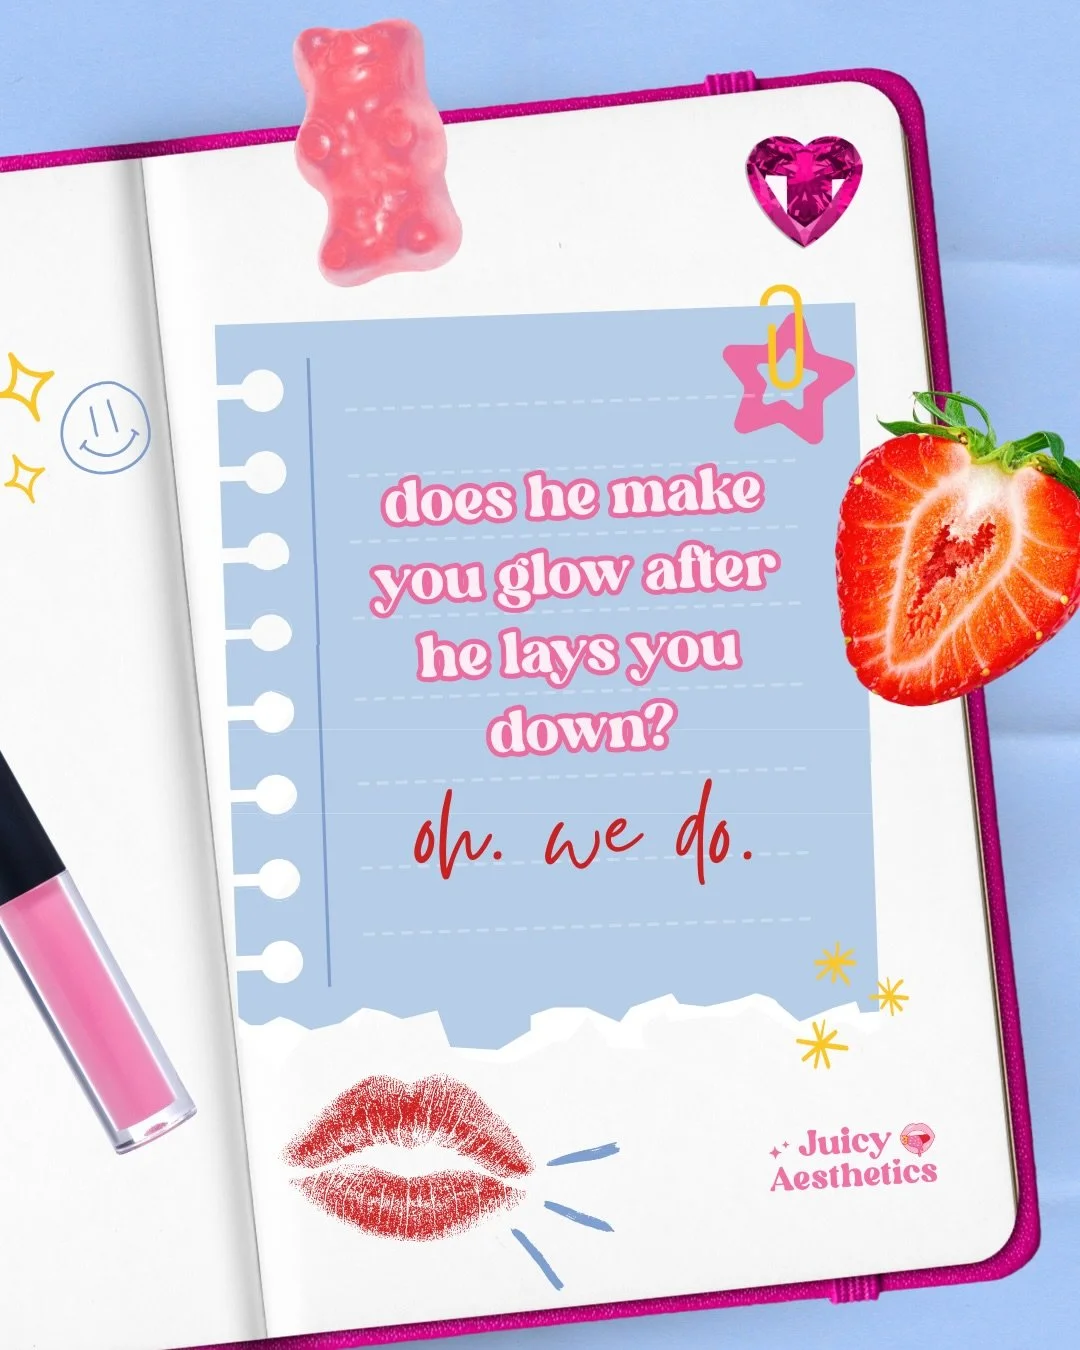 does he make
you glow after
he lays you
down?
oh. we do.
Juicy
Aesthetics